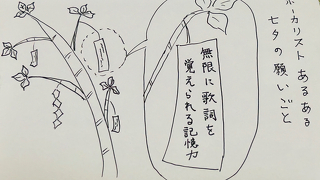 ボーカリストあるある
七夕の願いごと
無限に歌詞を
覚えられる記憶力